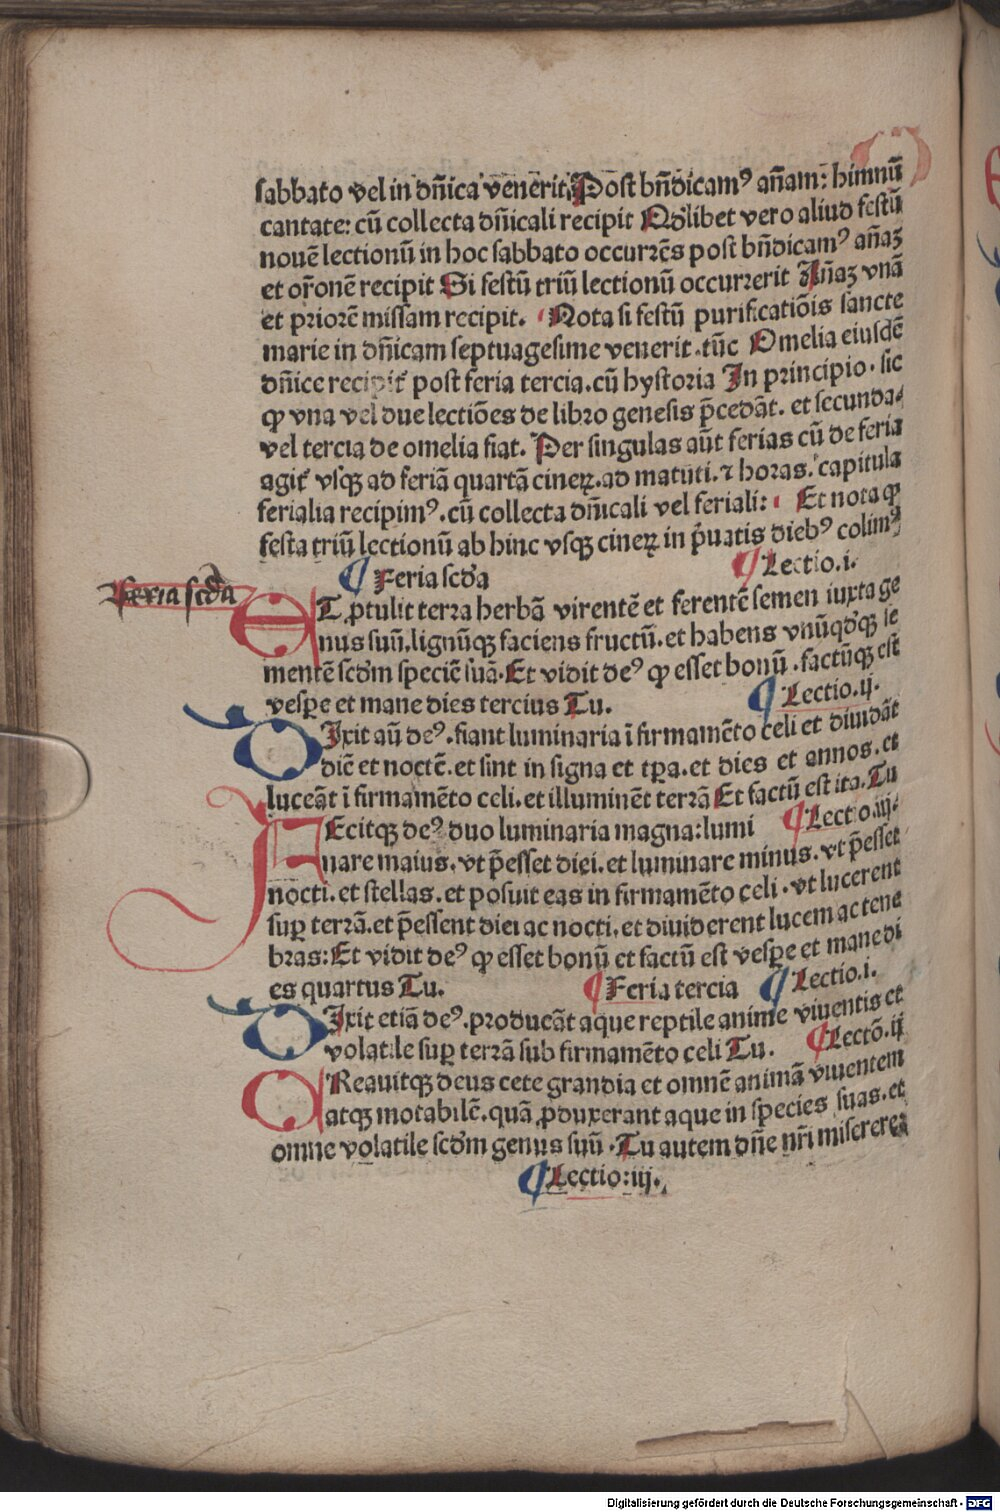 sabbato vel in dñica venerit. Post bñdicamꝰ añam: himnũ
cantate: cũ collecta dñicali recipit Qđlibet vero aliud festũ
nouē lectionũ in hoc sabbato occurrēs post bñdicamꝰ añaꝫ
et or̃onē recipit Si festũ triũ lectionũ occurrerit Añaꝫ vnā
et priorē missam recipit. Nota si festũ purificatiōis sancte
marie in dñicam septuagesime venerit .tũc Omelia eiusdē
dñice recipit᷑ post feria tercia .cũ hystoria In principio . sic
ꝙ vna vel due lectiōes de libro genesis p̄cedāt. et secunda
vel tercia de omelia fiat. Per singulas aũt ferias cũ de feria
agit᷑ vsqꝫ ad feriā quartā cineꝝ .ad matuti. ⁊ horas. capitula
ferialia recipimꝰ .cũ collecta dñicali vel feriali: Et nota ꝙ
festa triũ lectionũ ab hinc vsqꝫ cineꝝ in p̄uatis diebꝰ colimꝰ
¶ Feria scđa ¶ Lectio .i.
Feria scđa
ET ꝓtulit terra herbā virentē et ferentē semen iuxta ge
nus suũ .lignũqꝫ faciens fructũ. et habens vnũqđqꝫ se
mentē scđm speciē suā. Et vidit deꝰ ꝙ esset bonũ .factũqꝫ est
vespe̱ et mane dies tercius Tu. ¶ Lectio .ij.
DIxit aũ deꝰ. fiant luminaria ī firmamēto celi et diuidāt
diē et noctē. et sint in signa et tꝑa. et dies et annos. et
luceāt ī firmamēto celi. et illuminēt terrā Et factũ est ita. Tu
¶ Lectio .iij.
FEcitqꝫ deꝰ duo luminaria magna: lumi
nare maius. vt p̄esset diei. et luminare minus. vt p̄esset
nocti. et stellas. et posuit eas in firmamēto celi . vt lucerent
suꝑ terrā. et p̄essent diei ac nocti. et diuiderent lucem ac tene
bras: Et vidit deꝰ ꝙ esset bonũ et factũ est vespe̱ et mane di
es quartus Tu. ¶ Feria tercia ¶ Lectio .i.
DIxit etiā deꝰ. producāt aque reptile anime viuentis et
volatile suꝑ terrā sub firmamēto celi Tu. ¶ Lectō .ij
CReauitqꝫ deus cete grandia et omnē animā viuentem
atqꝫ motabilē. quā ꝓduxerant aque in species suas. et
omne volatile scđm genus suũ . Tu autem dñe nr̃i miserere
¶ Lectio: iij.
Digitalisierung gefördert durch die Deutsche Forschungsgemeinschaft - DFG